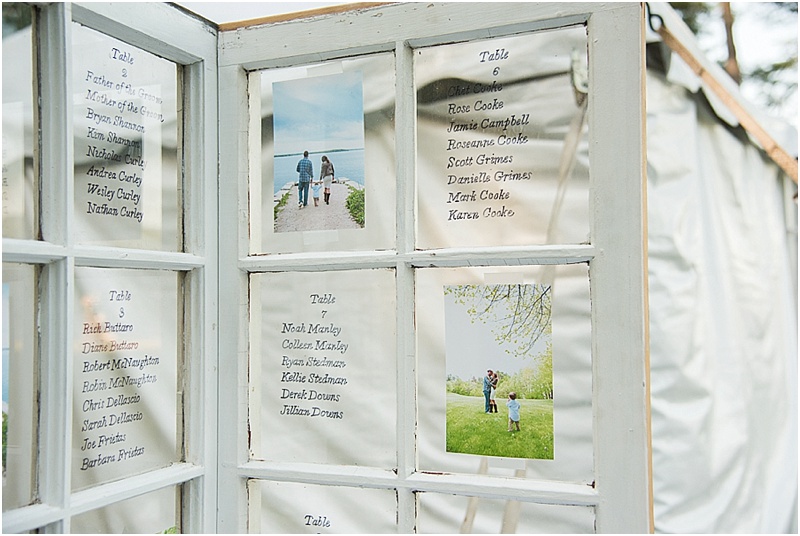 Table
2
Father of the Groom
Mother of the Groom
Bryan Shannon
Kim Shannon
Nicholas Curley
Andrea Curley
Wesley Curley
Nathan Curley
Table
3
Rich Buttaro
Diane Buttaro
Robert McNaughton
Robin McNaughton
Chris Dellascio
Sarah Dellascio
Joe Frietas
Barbara Frietas
Table
6
Chet Cooke
Rose Cooke
Jamie Campbell
Roseanne Cooke
Scott Grimes
Danielle Grimes
Mark Cooke
Karen Cooke
Table
7
Noah Manley
Colleen Manley
Ryan Stedman
Kellie Stedman
Derek Downs
Jillian Downs
Table